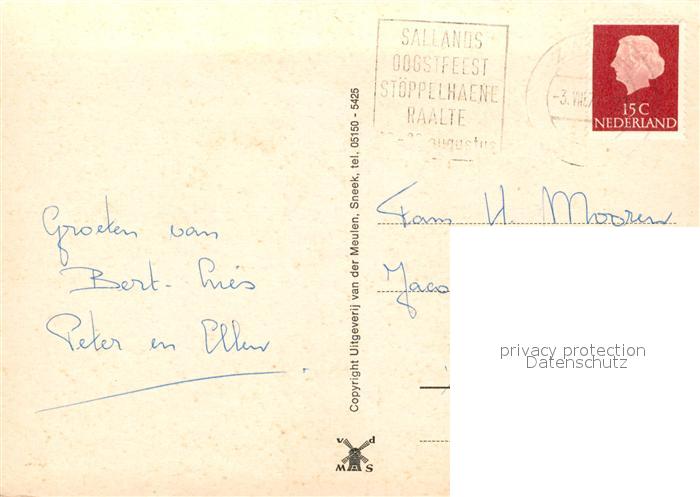 SALLANDS
OOGSTFEEST
STÖPPELHAENE
RAALTE
augustus
15 C
NEDERLAND
Groeten van
Bert-Liès
Peter en Ellen
Copyright Uitgeverij van der Meulen, Sneek, tel. 05150 - 5425
v d
M S
Fam H. Mooren
Jaco
privacy protection
Datenschutz